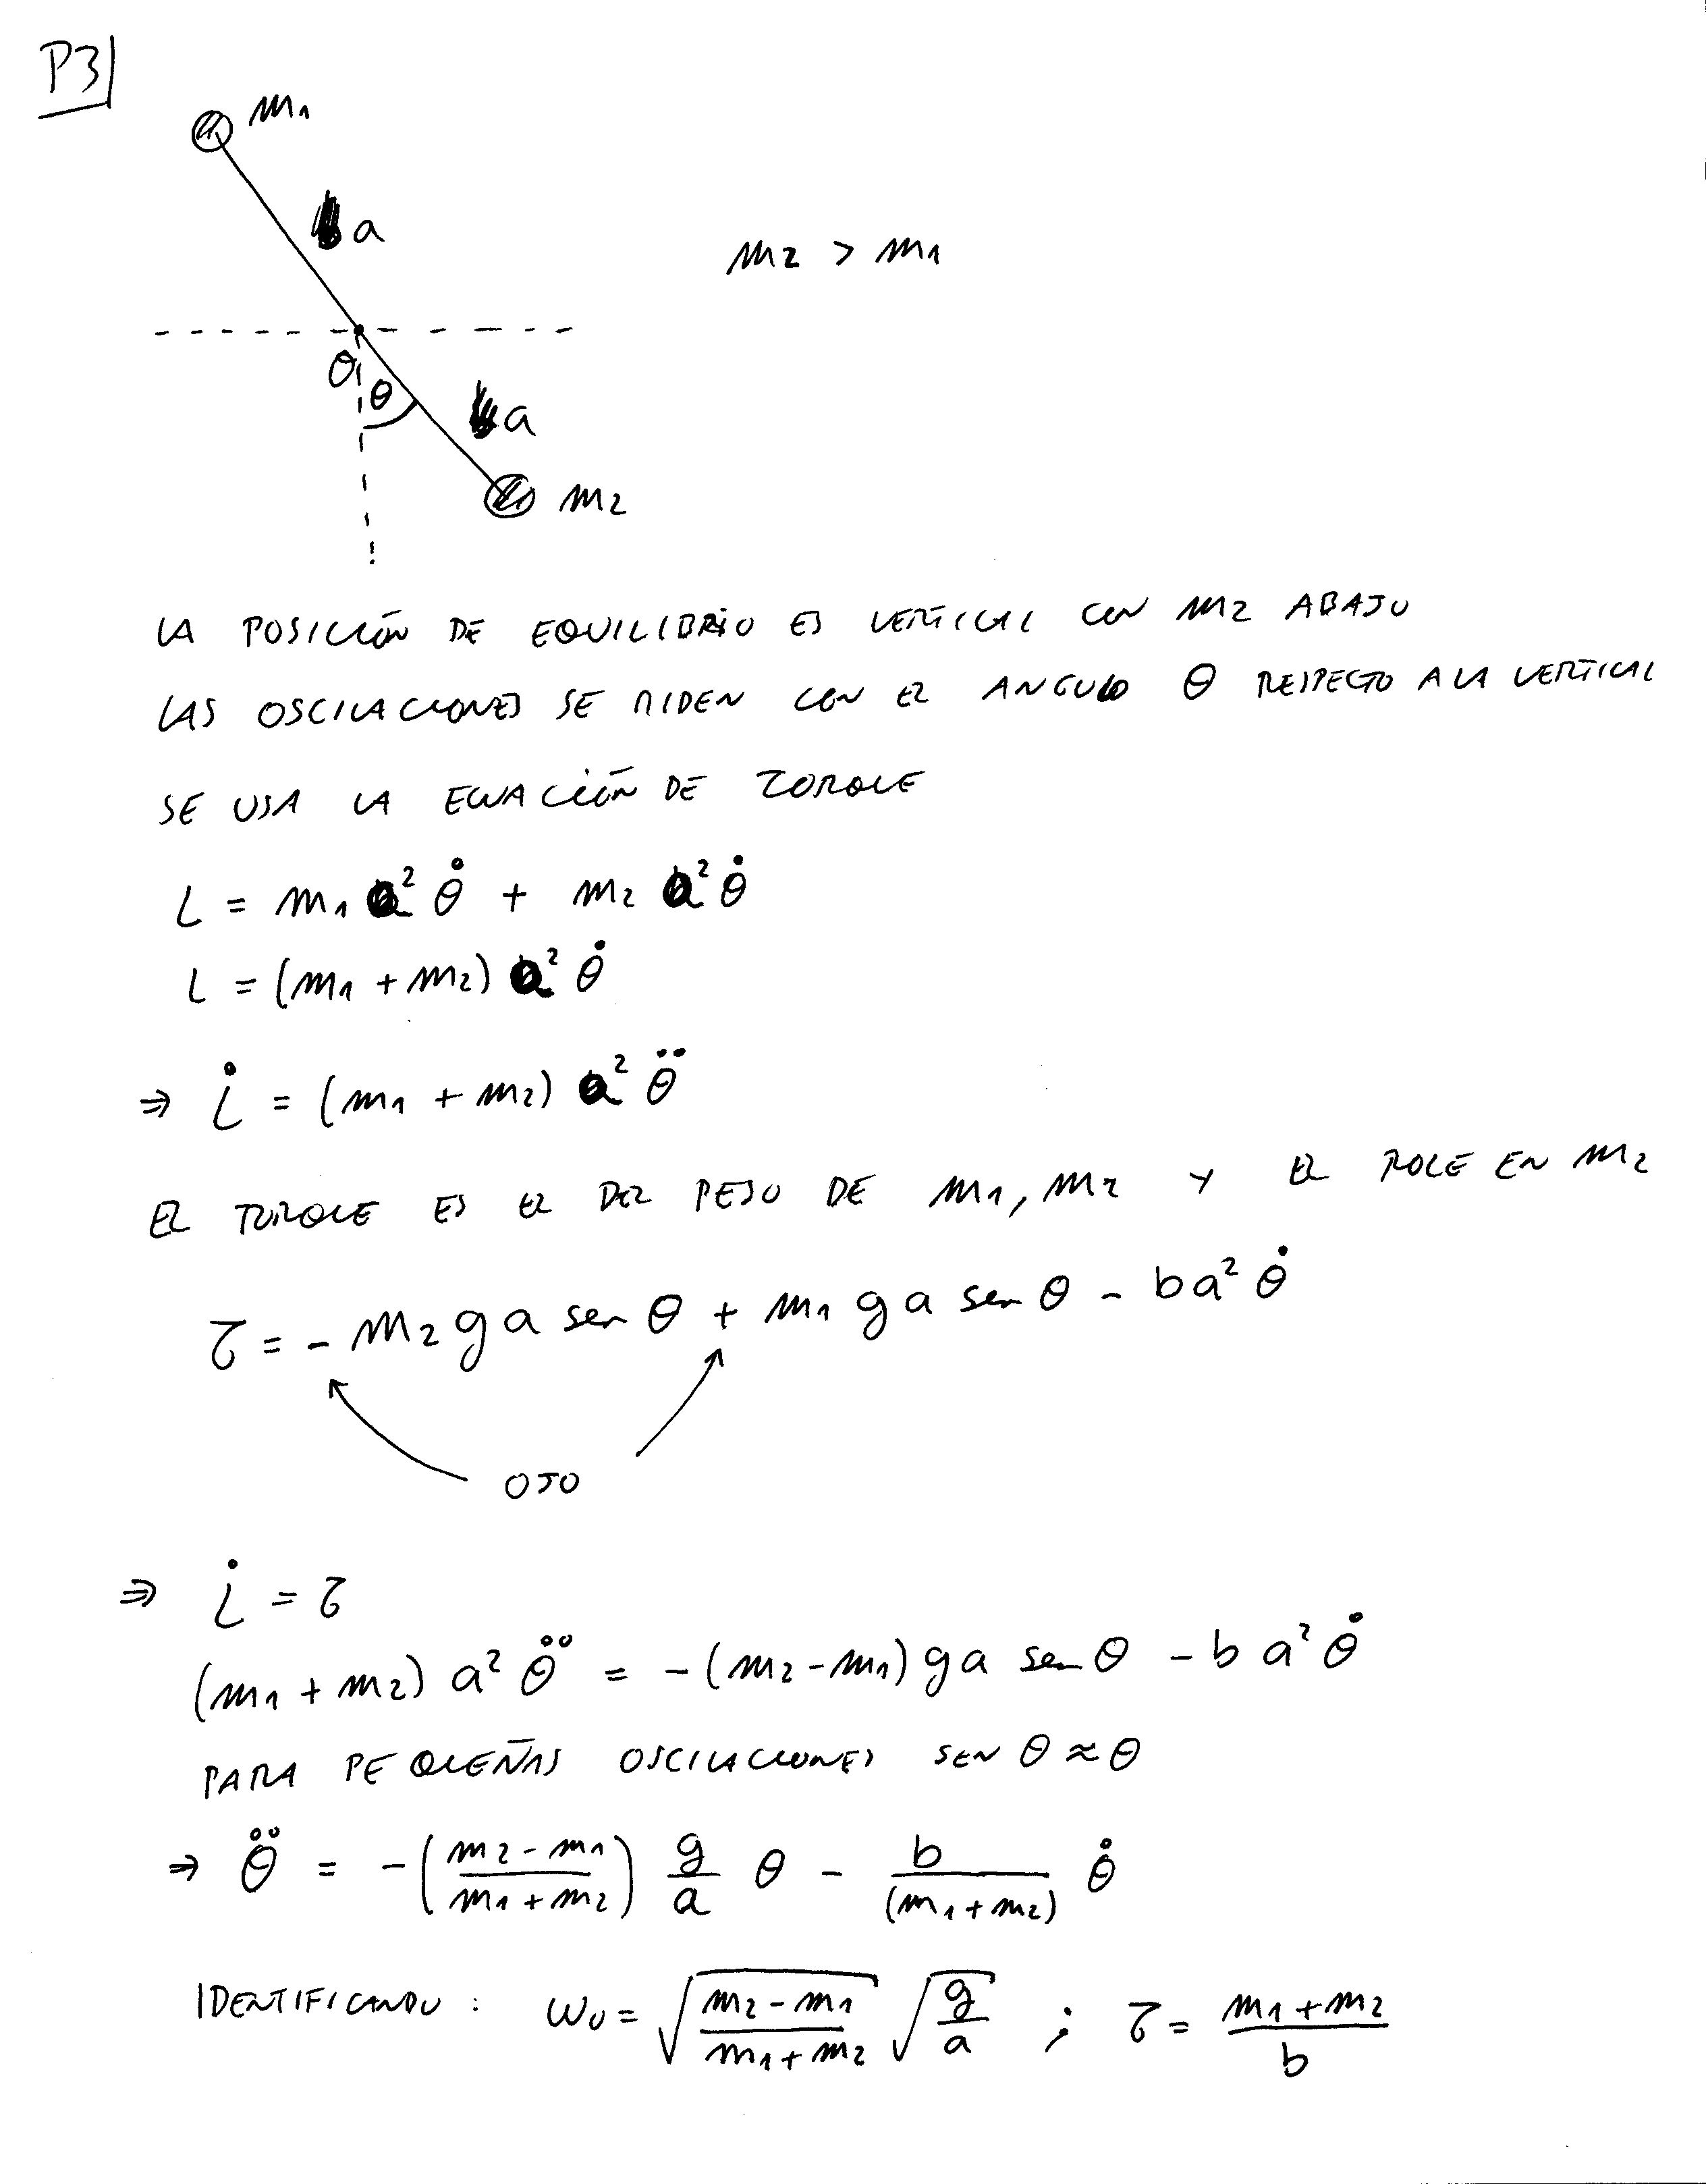 P3
m₁
a
m₂ > m₁
O
θ
a
m₂
LA POSICIÓN DE EQUILIBRIO ES VERTICAL CON m₂ ABAJO
LAS OSCILACIONES SE MIDEN CON EL ANGULO θ RESPECTO A LA VERTICAL
SE USA LA ECUACIÓN DE TORQUE
L = m₁ a² θ̇ + m₂ a² θ̇
L = (m₁ + m₂) a² θ̇
⇒ L̇ = (m₁ + m₂) a² θ̈
EL TORQUE ES EL DEL PESO DE m₁, m₂ Y EL ROCE EN m₂
τ = - m₂ g a sen θ + m₁ g a sen θ - b a² θ̇
OJO
⇒ L̇ = τ
(m₁ + m₂) a² θ̈ = - (m₂ - m₁) g a sen θ - b a² θ̇
PARA PEQUEÑAS OSCILACIONES SEN θ ≈ θ
⇒ θ̈ = - ((m₂ - m₁)/(m₁ + m₂)) g/a θ - b/(m₁ + m₂) θ̇
IDENTIFICANDO : ω₀ = √((m₂ - m₁)/(m₁ + m₂)) √(g/a) ; τ = (m₁ + m₂)/b